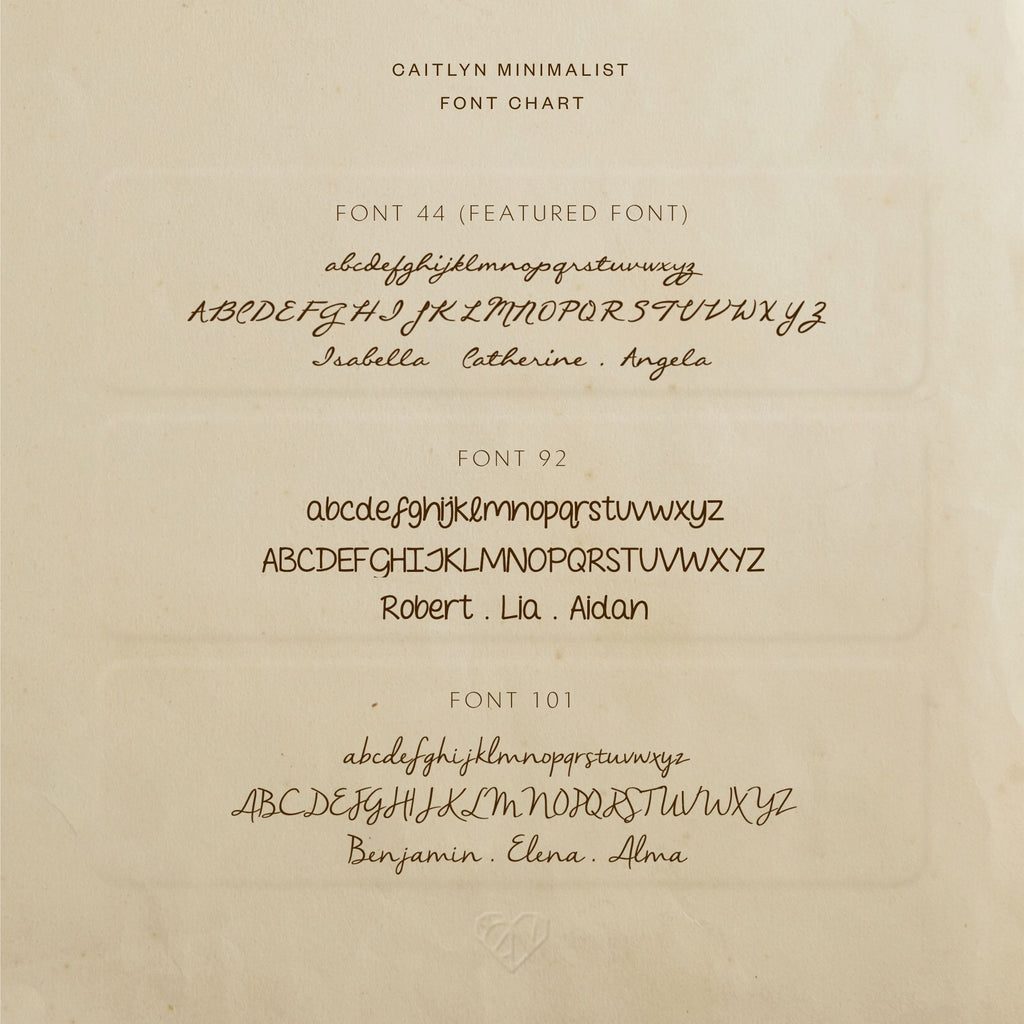 CAITLYN MINIMALIST
FONT CHART
FONT 44 (FEATURED FONT)
abcdefghijklmnopqrstuvwxyz
ABCDEFGHIJKLMNOPQRSTUVWXYZ
Isabella Catherine . Angela
FONT 92
abcdefghijklmnopqrstuvwxyz
ABCDEFGHIJKLMNOPQRSTUVWXYZ
Robert . Lia . Aidan
FONT 101
abcdefghijklmnopqrstuvwxyz
ABCDEFGHIJKLMNOPQRSTUVWXYZ
Benjamin . Elena . Alma